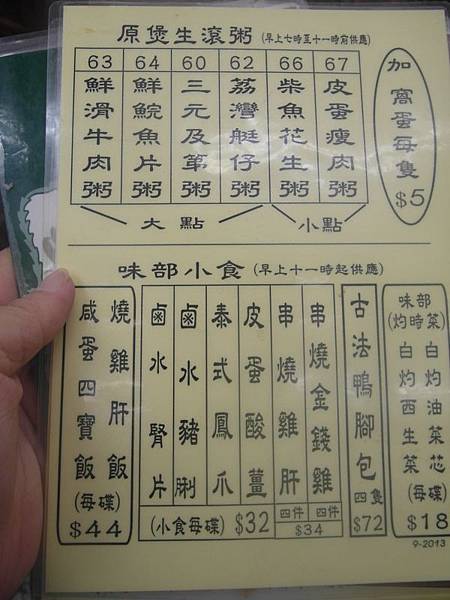 原煲生滾粥 (早上七時至十一時前供應)
63 64 60 62 66 67
鮮滑牛肉粥
鮮鯇魚片粥
三元及第粥
荔灣艇仔粥
柴魚花生粥
皮蛋瘦肉粥
大點
小點
加窩蛋每隻 $5
味部小食 (早上十一時起供應)
咸蛋四寶飯
燒雞肝飯
(每碟)
$44
鹵水腎片
鹵水豬脷
泰式鳳爪
皮蛋酸薑
(小食每碟) $32
串燒雞肝 四件
串燒金錢雞 四件
$34
古法鴨腳包 四隻
$72
味部
(灼時菜)
白灼西生菜
白灼油菜芯
(每碟)
$18
9-2013